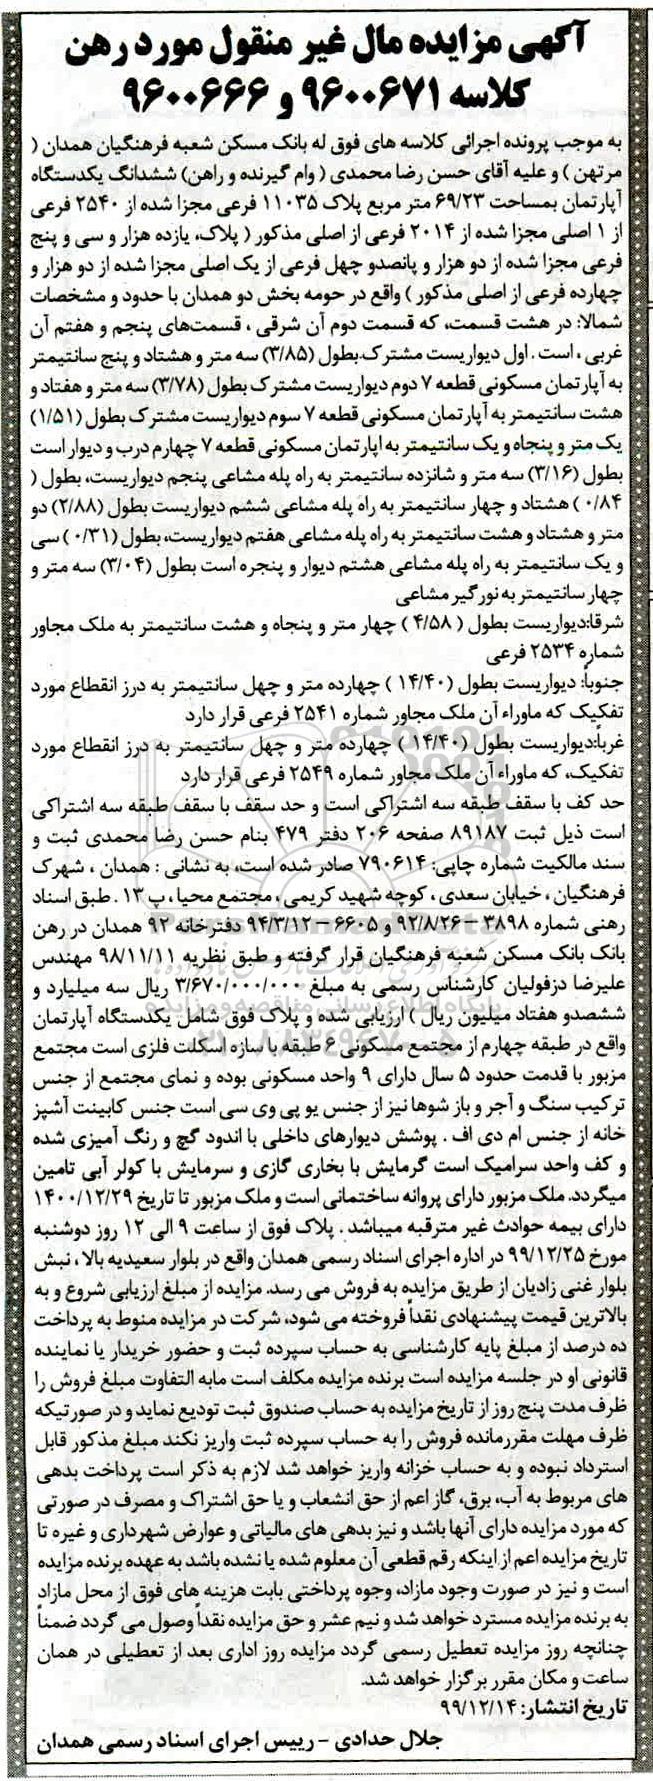 آگهی مزایده مال غیر منقول مورد رهن
کلاسه ۹۶۰۰۶۷۱ و ۹۶۰۰۶۶۶
به موجب پرونده اجرائی کلاسه های فوق له بانک مسکن شعبه فرهنگیان همدان (
مرتهن ) و علیه آقای حسن رضا محمدی ( وام گیرنده و راهن) ششدانگ یکدستگاه
آپارتمان بمساحت ۶۹/۲۳ متر مربع پلاک ۱۱۰۳۵ فرعی مجزا شده از ۲۵۴۰ فرعی
از ۱ اصلی مجزا شده از ۲۰۱۴ فرعی از اصلی مذکور ( پلاک، یازده هزار و سی و پنج
فرعی مجزا شده از دو هزار و پانصدو چهل فرعی از یک اصلی مجزا شده از دو هزار و
چهارده فرعی از اصلی مذکور ) واقع در حومه بخش دو همدان با حدود و مشخصات
شمالا: در هشت قسمت، که قسمت دوم آن شرقی ، قسمت‌های پنجم و هفتم آن
غربی ، است . اول دیواریست مشترک.بطول (۳/۸۵) سه متر و هشتاد و پنج سانتیمتر
به آپارتمان مسکونی قطعه ۷ دوم دیواریست مشترک بطول (۳/۷۸) سه متر و هفتاد و
هشت سانتیمتر به آپارتمان مسکونی قطعه ۷ سوم دیواریست مشترک بطول (۱/۵۱)
یک متر و پنجاه و یک سانتیمتر به اپارتمان مسکونی قطعه ۷ چهارم درب و دیوار است
بطول (۳/۱۶) سه متر و شانزده سانتیمتر به راه پله مشاعی پنجم دیواریست، بطول (
۰/۸۴ ) هشتاد و چهار سانتیمتر به راه پله مشاعی ششم دیواریست بطول (۲/۸۸) دو
متر و هشتاد و هشت سانتیمتر به راه پله مشاعی هفتم دیواریست، بطول (۰/۳۱ ) سی
و یک سانتیمتر به راه پله مشاعی هشتم دیوار و پنجره است بطول (۳/۰۴) سه متر و
چهار سانتیمتر به نورگیر مشاعی
شرقا:دیواریست بطول ( ۴/۵۸ ) چهار متر و پنجاه و هشت سانتیمتر به ملک مجاور
شماره ۲۵۳۴ فرعی
جنوباً: دیواریست بطول (۱۴/۴۰ ) چهارده متر و چهل سانتیمتر به درز انقطاع مورد
تفکیک که ماوراء آن ملک مجاور شماره ۲۵۴۱ فرعی قرار دارد
غرباً:دیواریست بطول (۱۴/۴۰ ) چهارده متر و چهل سانتیمتر به درز انقطاع مورد
تفکیک، که ماوراء آن ملک مجاور شماره ۲۵۴۹ فرعی قرار دارد
حد کف با سقف طبقه سه اشتراکی است و حد سقف با سقف طبقه سه اشتراکی
است ذیل ثبت ۸۹۱۸۷ صفحه ۲۰۶ دفتر ۴۷۹ بنام حسن رضا محمدی ثبت و
سند مالکیت شماره چاپی: ۷۹۰۶۱۴ صادر شده است، به نشانی : همدان ، شهرک
فرهنگیان ، خیابان سعدی ، کوچه شهید کریمی ، مجتمع محیا ، پ ۱۳ . طبق اسناد
رهنی شماره ۳۸۹۸-۹۲/۸/۲۶ و ۶۶۰۵-۹۴/۳/۱۲ دفترخانه ۹۲ همدان در رهن
بانک بانک مسکن شعبه فرهنگیان قرار گرفته و طبق نظریه ۹۸/۱۱/۱۱ مهندس
علیرضا دزفولیان کارشناس رسمی به مبلغ ۳/۶۷۰/۰۰۰/۰۰۰ ریال سه میلیارد و
ششصدو هفتاد میلیون ریال ) ارزیابی شده و پلاک فوق شامل یکدستگاه آپارتمان
واقع در طبقه چهارم از مجتمع مسکونی ۶ طبقه با سازه اسکلت فلزی است مجتمع
مزبور با قدمت حدود ۵ سال دارای ۹ واحد مسکونی بوده و نمای مجتمع از جنس
ترکیب سنگ و آجر و باز شوها نیز از جنس یو پی وی سی است جنس کابینت آشپز
خانه از جنس ام دی اف . پوشش دیوارهای داخلی با اندود گچ و رنگ آمیزی شده
و کف واحد سرامیک است گرمایش با بخاری گازی و سرمایش با کولر آبی تامین
میگردد. ملک مزبور دارای پروانه ساختمانی است و ملک مزبور تا تاریخ ۱۴۰۰/۱۲/۲۹
دارای بیمه حوادث غیر مترقبه میباشد . پلاک فوق از ساعت ۹ الی ۱۲ روز دوشنبه
مورخ ۹۹/۱۲/۲۵ در اداره اجرای اسناد رسمی همدان واقع در بلوار سعیدیه بالا ، نبش
بلوار غنی زادیان از طریق مزایده به فروش می رسد. مزایده از مبلغ ارزیابی شروع و به
بالاترین قیمت پیشنهادی نقداً فروخته می شود، شرکت در مزایده منوط به پرداخت
ده درصد از مبلغ پایه کارشناسی به حساب سپرده ثبت و حضور خریدار یا نماینده
قانونی او در جلسه مزایده است برنده مزایده مکلف است مابه التفاوت مبلغ فروش را
ظرف مدت پنج روز از تاریخ مزایده به حساب صندوق ثبت تودیع نماید و در صورتیکه
ظرف مهلت مقرر مانده فروش را به حساب سپرده ثبت واریز نکند مبلغ مذکور قابل
استرداد نبوده و به حساب خزانه واریز خواهد شد لازم به ذکر است پرداخت بدهی
های مربوط به آب، برق، گاز اعم از حق انشعاب و یا حق اشتراک و مصرف در صورتی
که مورد مزایده دارای آنها باشد و نیز بدهی های مالیاتی و عوارض شهرداری و غیره تا
تاریخ مزایده اعم از اینکه رقم قطعی آن معلوم شده یا نشده باشد به عهده برنده مزایده
است و نیز در صورت وجود مازاد، وجوه پرداختی بابت هزینه های فوق از محل مازاد
به برنده مزایده مسترد خواهد شد و نیم عشر و حق مزایده نقداً وصول می گردد ضمناً
چنانچه روز مزایده تعطیل رسمی گردد مزایده روز اداری بعد از تعطیلی در همان
ساعت و مکان مقرر برگزار خواهد شد.
تاریخ انتشار: ۹۹/۱۲/۱۴
جلال حدادی – رییس اجرای اسناد رسمی همدان